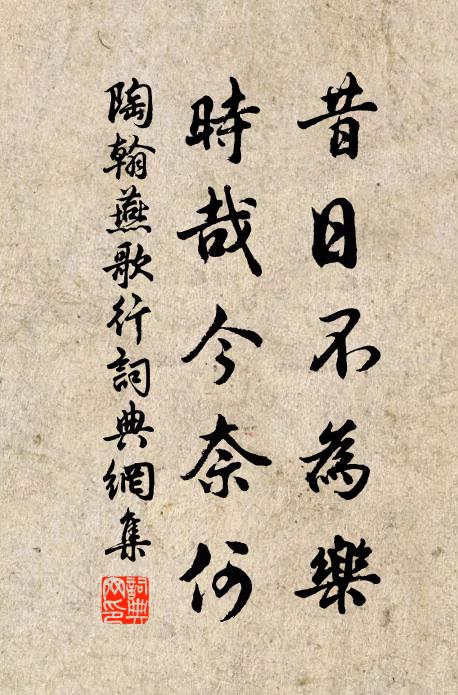 昔日不為樂
時哉今奈何
陶翰燕歌行詞典網集
詞典網印